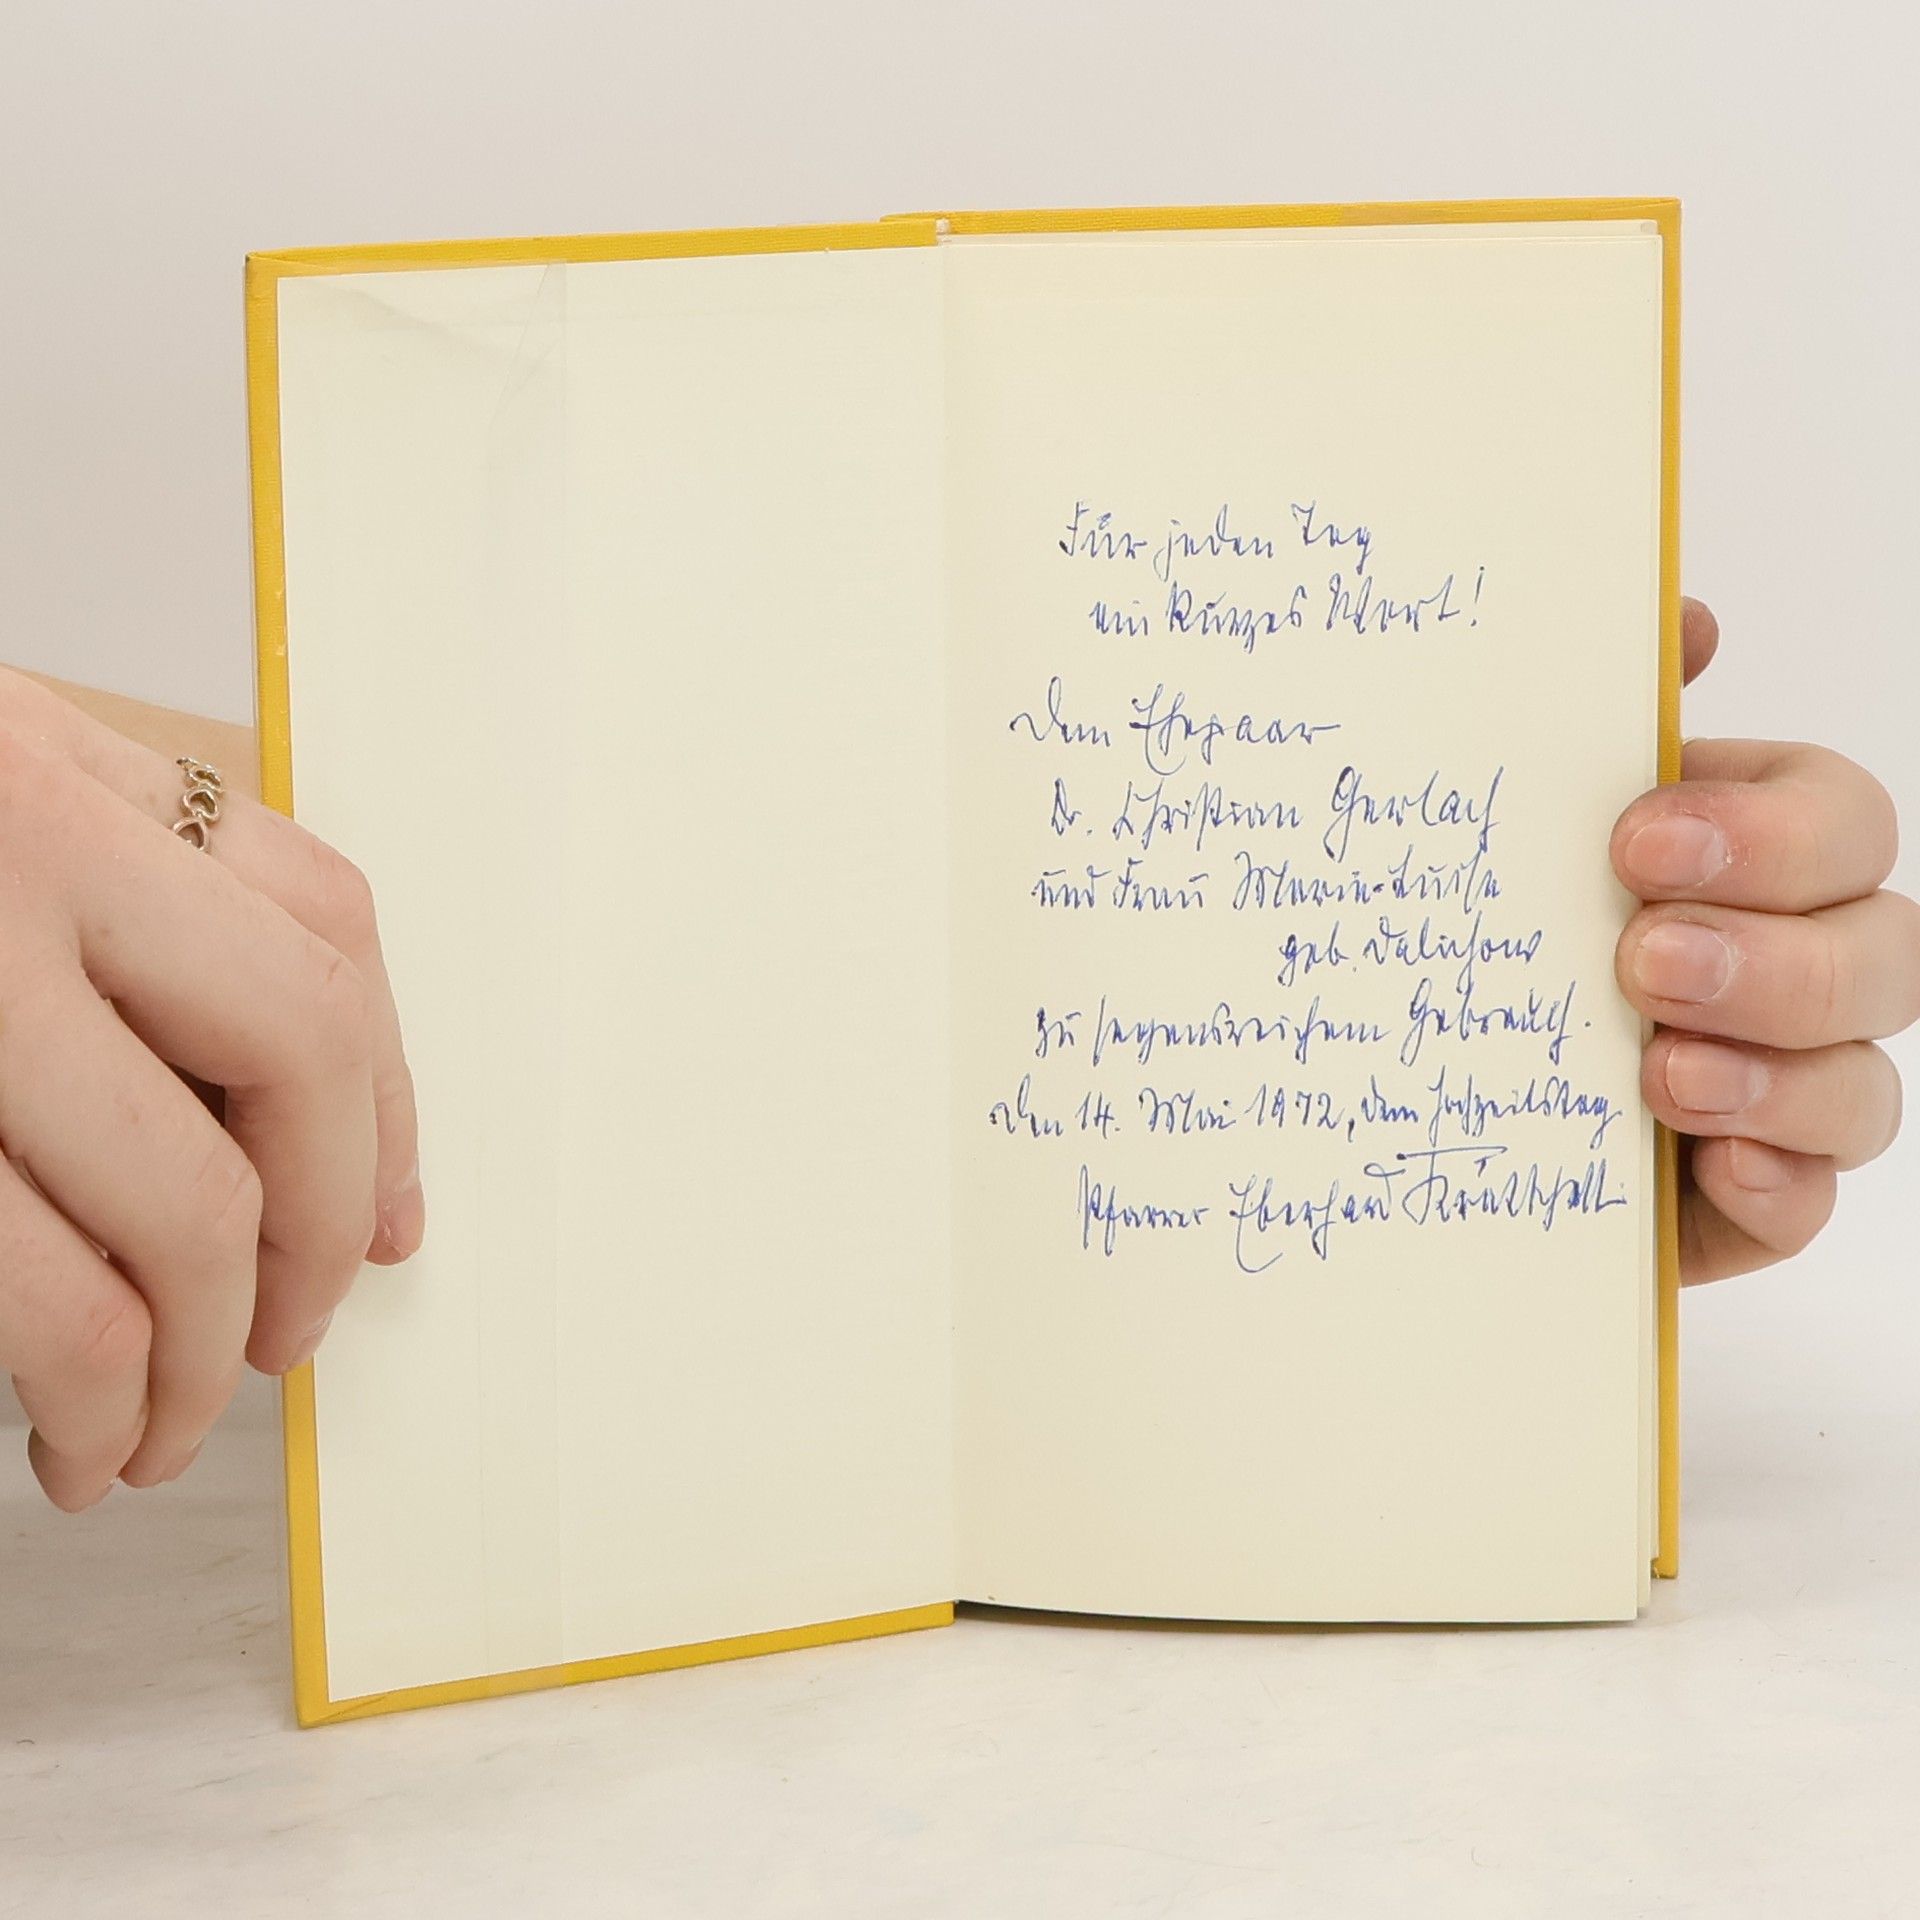 Für jeden Tag
ein kurzes Wort!
Dem Ehepaar
Dr. Christian Gerlach
und Frau Marie-Luise
geb. Dalichow
zu segensreichem Gebrauch.
Den 14. Mai 1972, dem Hochzeitstag.
Pfarrer Eberhard